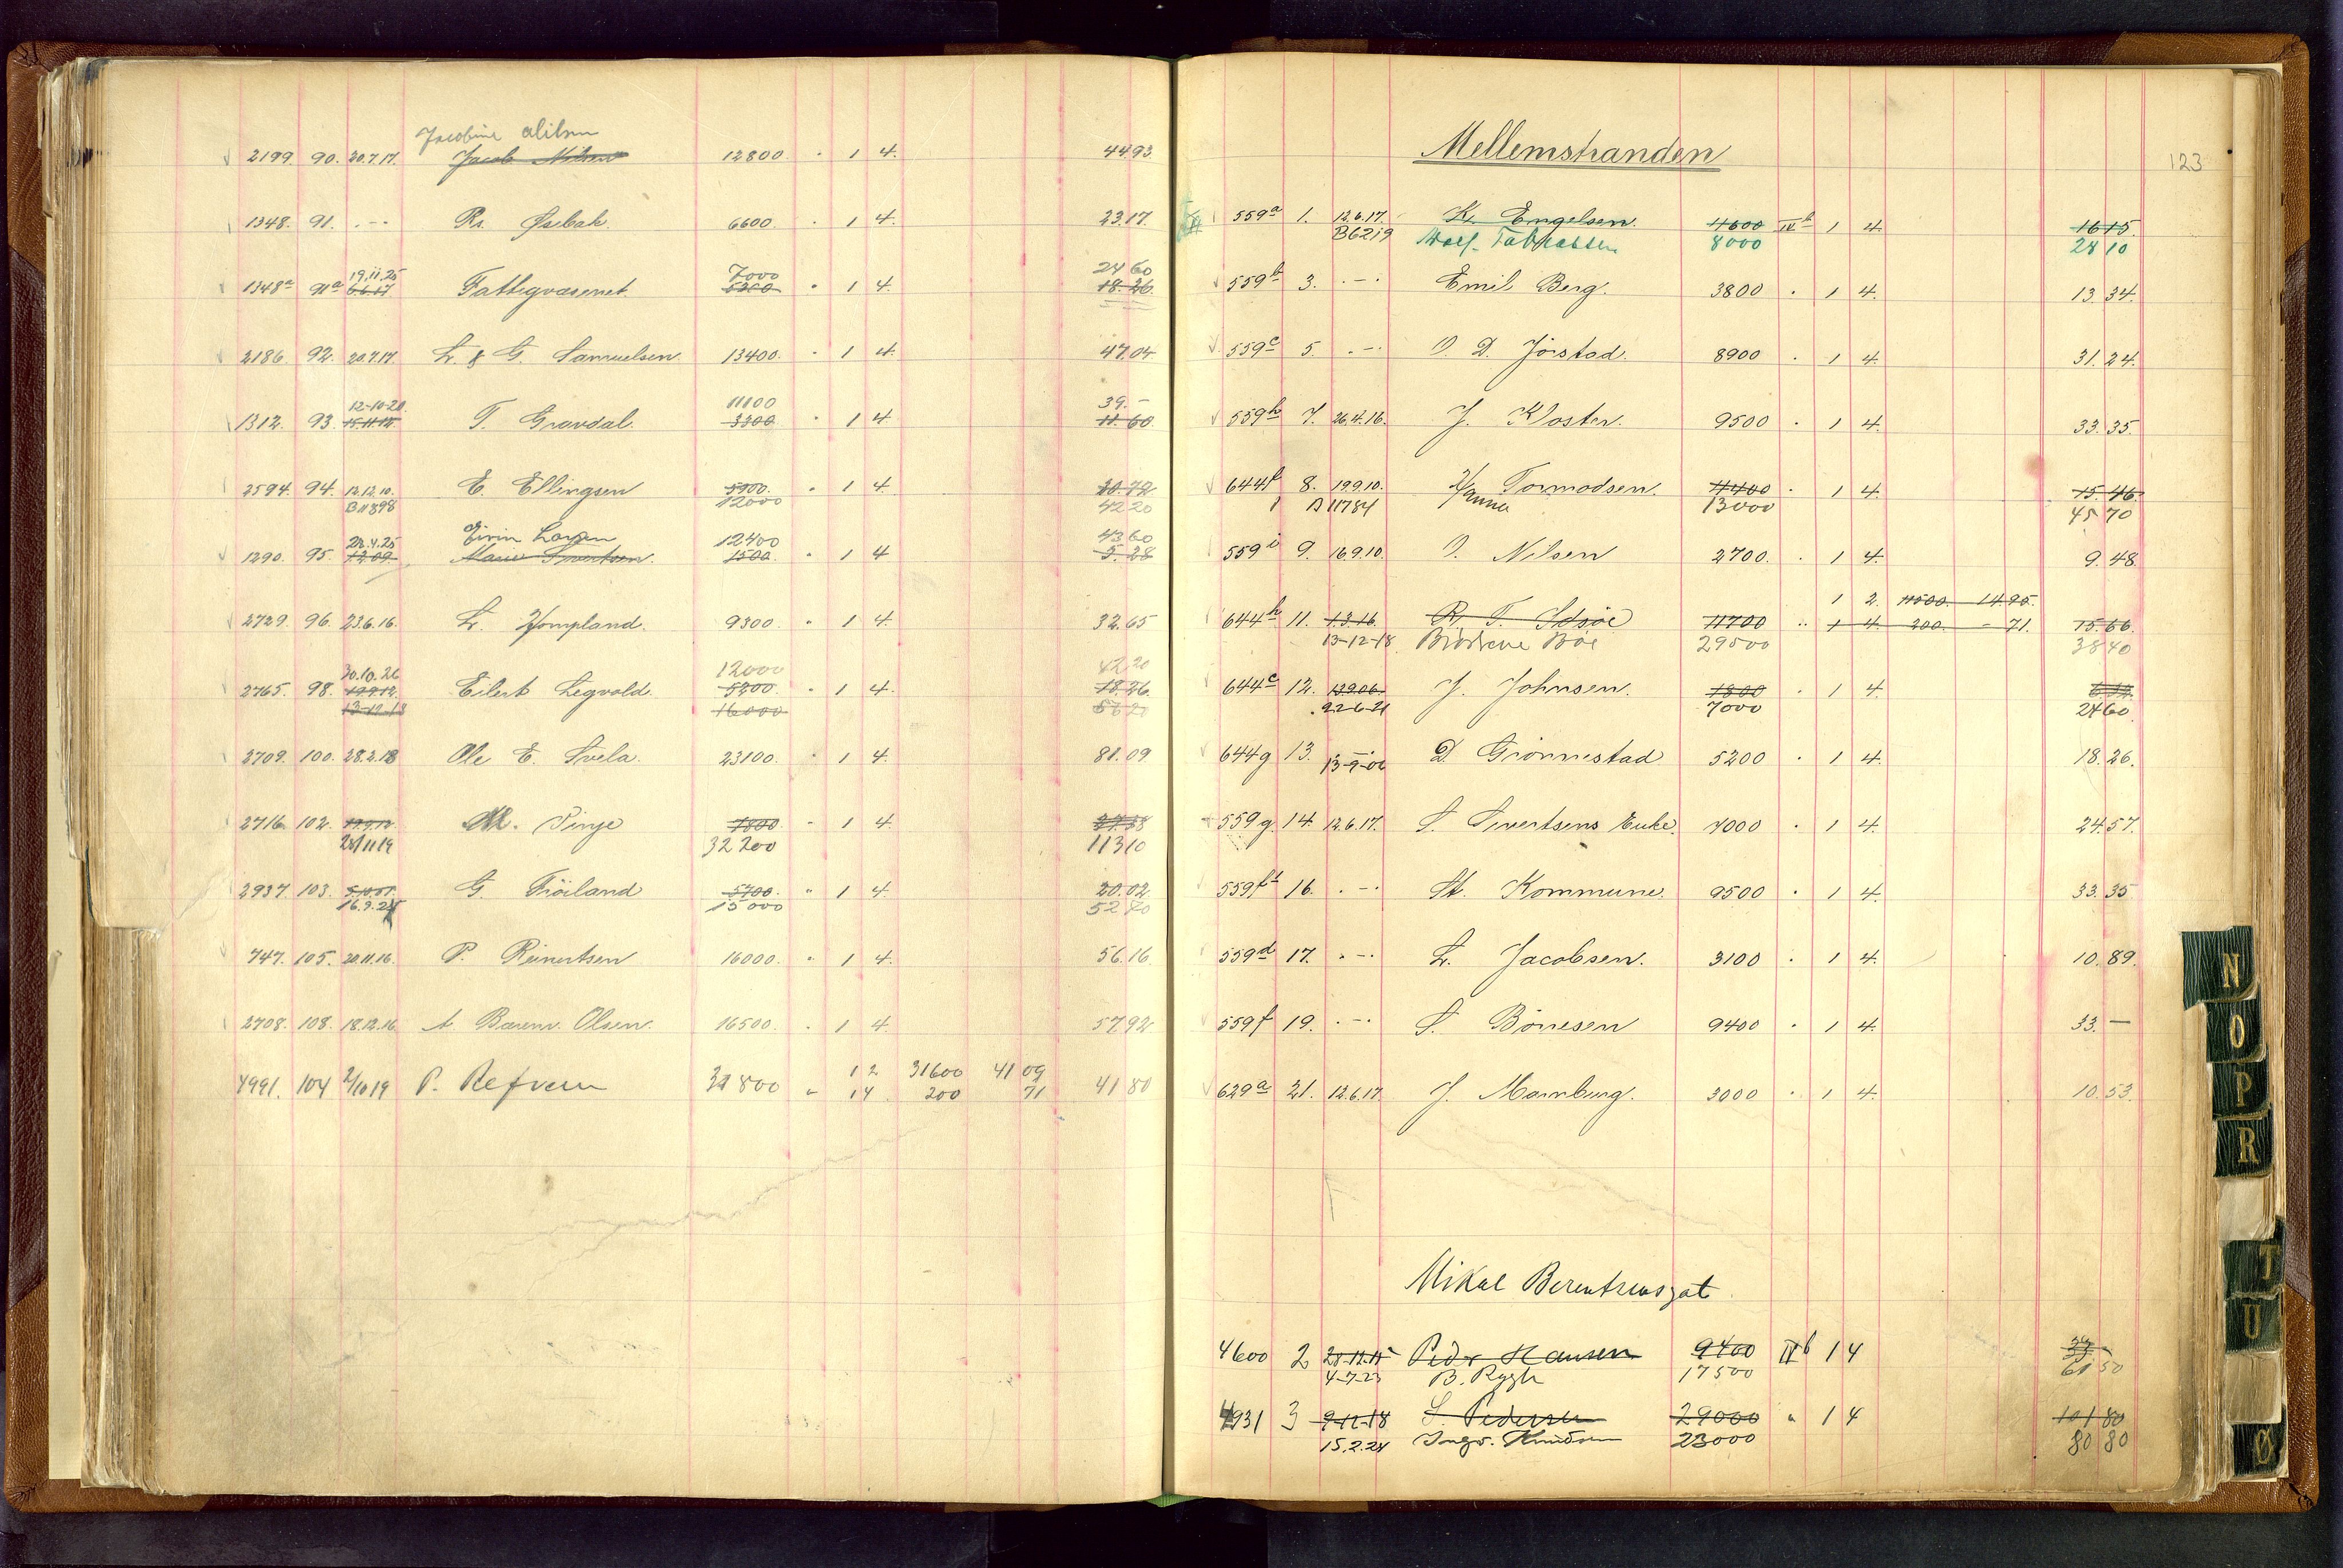 Jacobine
2199. 90. 20.7.17. Jacob Nilsen 12800. " 1 4. 44.93.
1348. 91. - - - Rs. Østbak. 6600. " 1 4. 23.17.
19.11.25 7000 24 60
1348a 91a 6.6.17 Fattigvæsenet. 5200 " 1 4. 18.26.
2186. 92. 20.7.17. L. & G. Samuelsen. 13400. " 1 4. 47.04
12-10-20. 11100 39.-
1312. 93. 15.11.12. T. Gravdal. 3300. " 1 4 11.60.
2594. 94. 12.12.10. E. Ellingsen 5900. " 1 4. 20.72
B11898 12000 42 20
28.4.25 Larsen 12400 43 60
1290. 95. 1.2.09. Marie Sivertsen. 1500. " 1 4 5.28
2729. 96. 23.6.16. L. Hompland. 9300. " 1 4. 32.65
30.10.26 12000 42 20
2765. 98. 19.9.12. Eilert Legvold. 5200. " 1 4. 18.26.
13-12-18 16000 56 20
2709. 100. 28.2.18 Ole E. Svela. 23100. " 1 4. 81.09
2716. 102. 19.9.12. M. Vinje 7800 " 1 4. 27.38
28/11 19 32200 113 10
2937. 103. 5.10.07. G. Frøiland 5700. " 1 4. 20.02.
16.9.24 15000 52 70
747. 105. 20.11.16. P. Reinertsen 16000. " 1 4. 56.16.
2708. 108. 18.12.16. A. Olsen. 16500. " 1 4. 57.92
1 2 31600 41 09
4991. 104 2/10 19 P. Refvem 31800 " 1 4 200 71 41 80
Mellemstranden
123
559a 1. 12.6.17. K. Engelsen. 4600 IIb 1 4. 16.15
B6219 8000 28 10
559b 3. - - - Emil Berg. 3800 " 1 4. 13.34.
559c 5. - - - O. D. Jörstad. 8900 " 1 4. 31.24.
559h 7. 26.4.16. J. Kloster. 9500 " 1 4. 33.35.
644f 8. 19.9.10. Tormodsen. 4400 " 1 4. 15.46.
B11784 Hanna 13000 45 70
559i 9. 16.9.10. O. Nilsen 2700. " 1 4. 9.48.
1 2. 11500. 14.95.
644h 11. 1.3.16. R. T. Idsøe 11700 " 1 4. 200. - 71. 15.66.
13-12-18 Brødrene Bøe 29500 38 40
644c 12. 13.9.06. J. Johnsen. 1800 " 1 4. 6.32.
22-6-21 7000 24 60
644g 13. - - - D. Grönnestad 5200 " 1 4. 18.26.
13-9-06
559g 14. 12.6.17. S. Sivertsens Enke. 7000 " 1 4. 24.57.
559f1 16. - - - St. Kommune. 9500 " 1 4. 33.35
559d 17. - - - L. Jacobsen. 3100 " 1 4. 10.89.
559f 19. - - - S. Bönesen 9400 " 1 4. 33.-
629a 21. 12.6.17. J. Marnburg. 3000 " 1 4. 10.53.
Mikal Berentsensgat
4600 2 28-12-15 Peder Hansen 9400 IIb 1 4 33.-
4-7-23 B. Rygh 17500 61 50
4931 3 9-12-18 S. Pedersen 29000 " 1 4 101 80
15.2.24 Ingv. Knudsen 23000 80 80
N
O
P
R
T
U
Ø